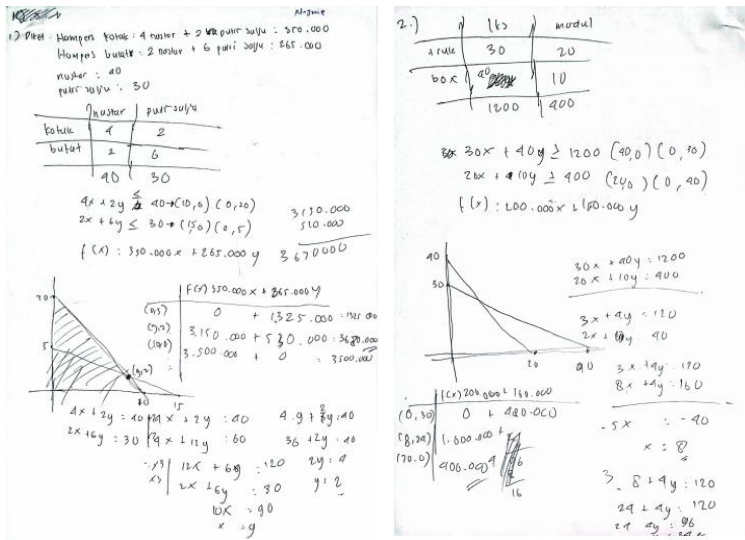 1) Diket : Hampers kotak : 4 nastar + 2 putri salju : 350.000
Hampers bulat : 2 nastar + 6 putri salju : 265.000
nastar : 40
putri salju : 30
nastar | putri salju
kotak 4 2
bulat 2 6
40 30
4x + 2y ≤ 40 → (10,0) (0,20)
2x + 6y ≤ 30 → (15,0) (0,5)
f(x) : 350.000x + 265.000y
3.150.000
520.000
3670000
20
5
(9,2)
10 15
f(x) 350.000x + 265.000y
(0,5) 0 + 1.325.000 = 1325.000
(9,2) 3.150.000 + 530.000 = 3680.000
(10,0) 3.500.000 + 0 = 3500.000
4x + 2y : 40
2x + 6y : 30
4x + 2y : 40
4x + 12y : 60
x3 12x + 6y : 120
x3 2x + 6y : 30
10x = 90
x = 9
4.9 + 2y : 40
36 + 2y : 40
2y : 4
y : 2
2.)
lks modul
truk 30 20
box 40 10
1200 400
30x + 40y ≥ 1200 (40,0) (0,30)
20x + 10y ≥ 400 (20,0) (0,40)
f(x) : 200.000x + 160.000y
40
30
20 40
30x + 40y : 1200
20x + 10y : 400
3x + 4y : 120
2x + y 40
3x + 4y : 120
8x + 4y : 160
-5x : -40
x : 8
f(x) 200.000 + 160.000
(0,30) 0 + 480.000
(8,24) 1.600.000 +
(20.0)
16
3. 8 + 4y : 120
24 + 4y : 120
4y : 96